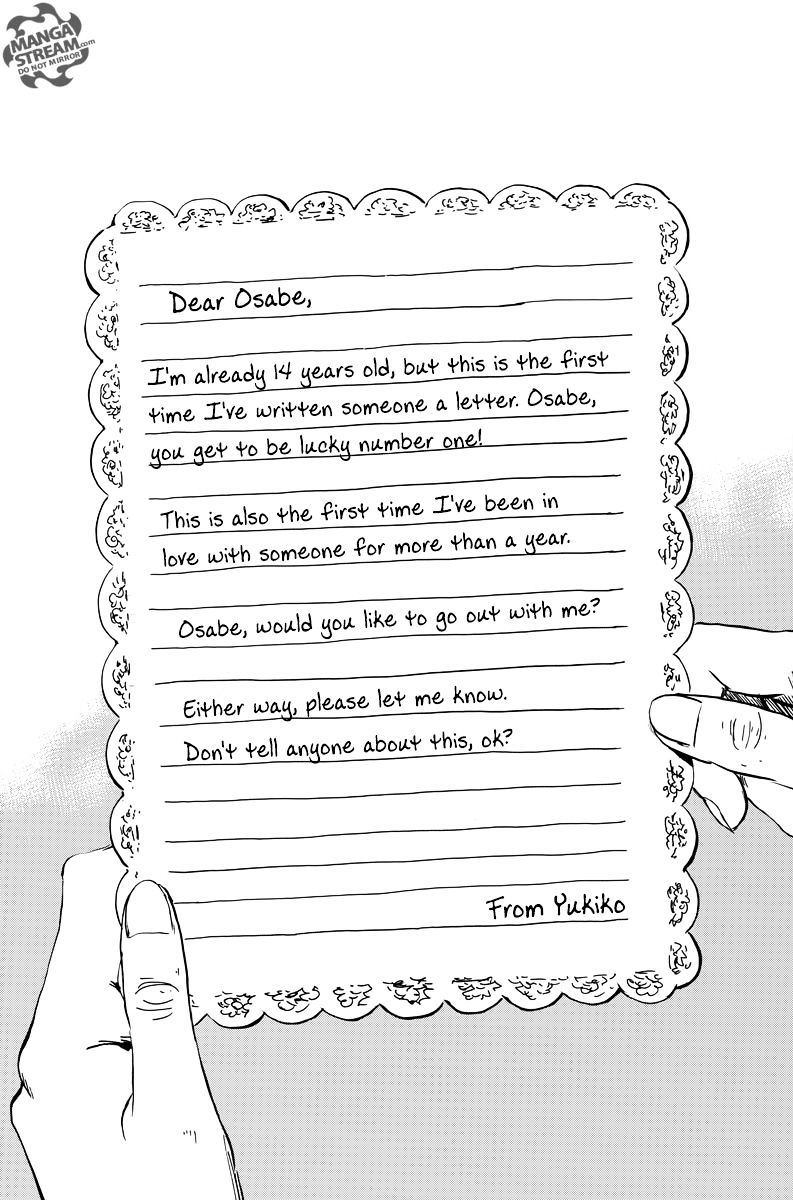 MANGA
STREAM.com
DO NOT MIRROR
Dear Osabe,
I'm already 14 years old, but this is the first
time I've written someone a letter. Osabe,
you get to be lucky number one!
This is also the first time I've been in
love with someone for more than a year.
Osabe, would you like to go out with me?
Either way, please let me know.
Don't tell anyone about this, ok?
From Yukiko